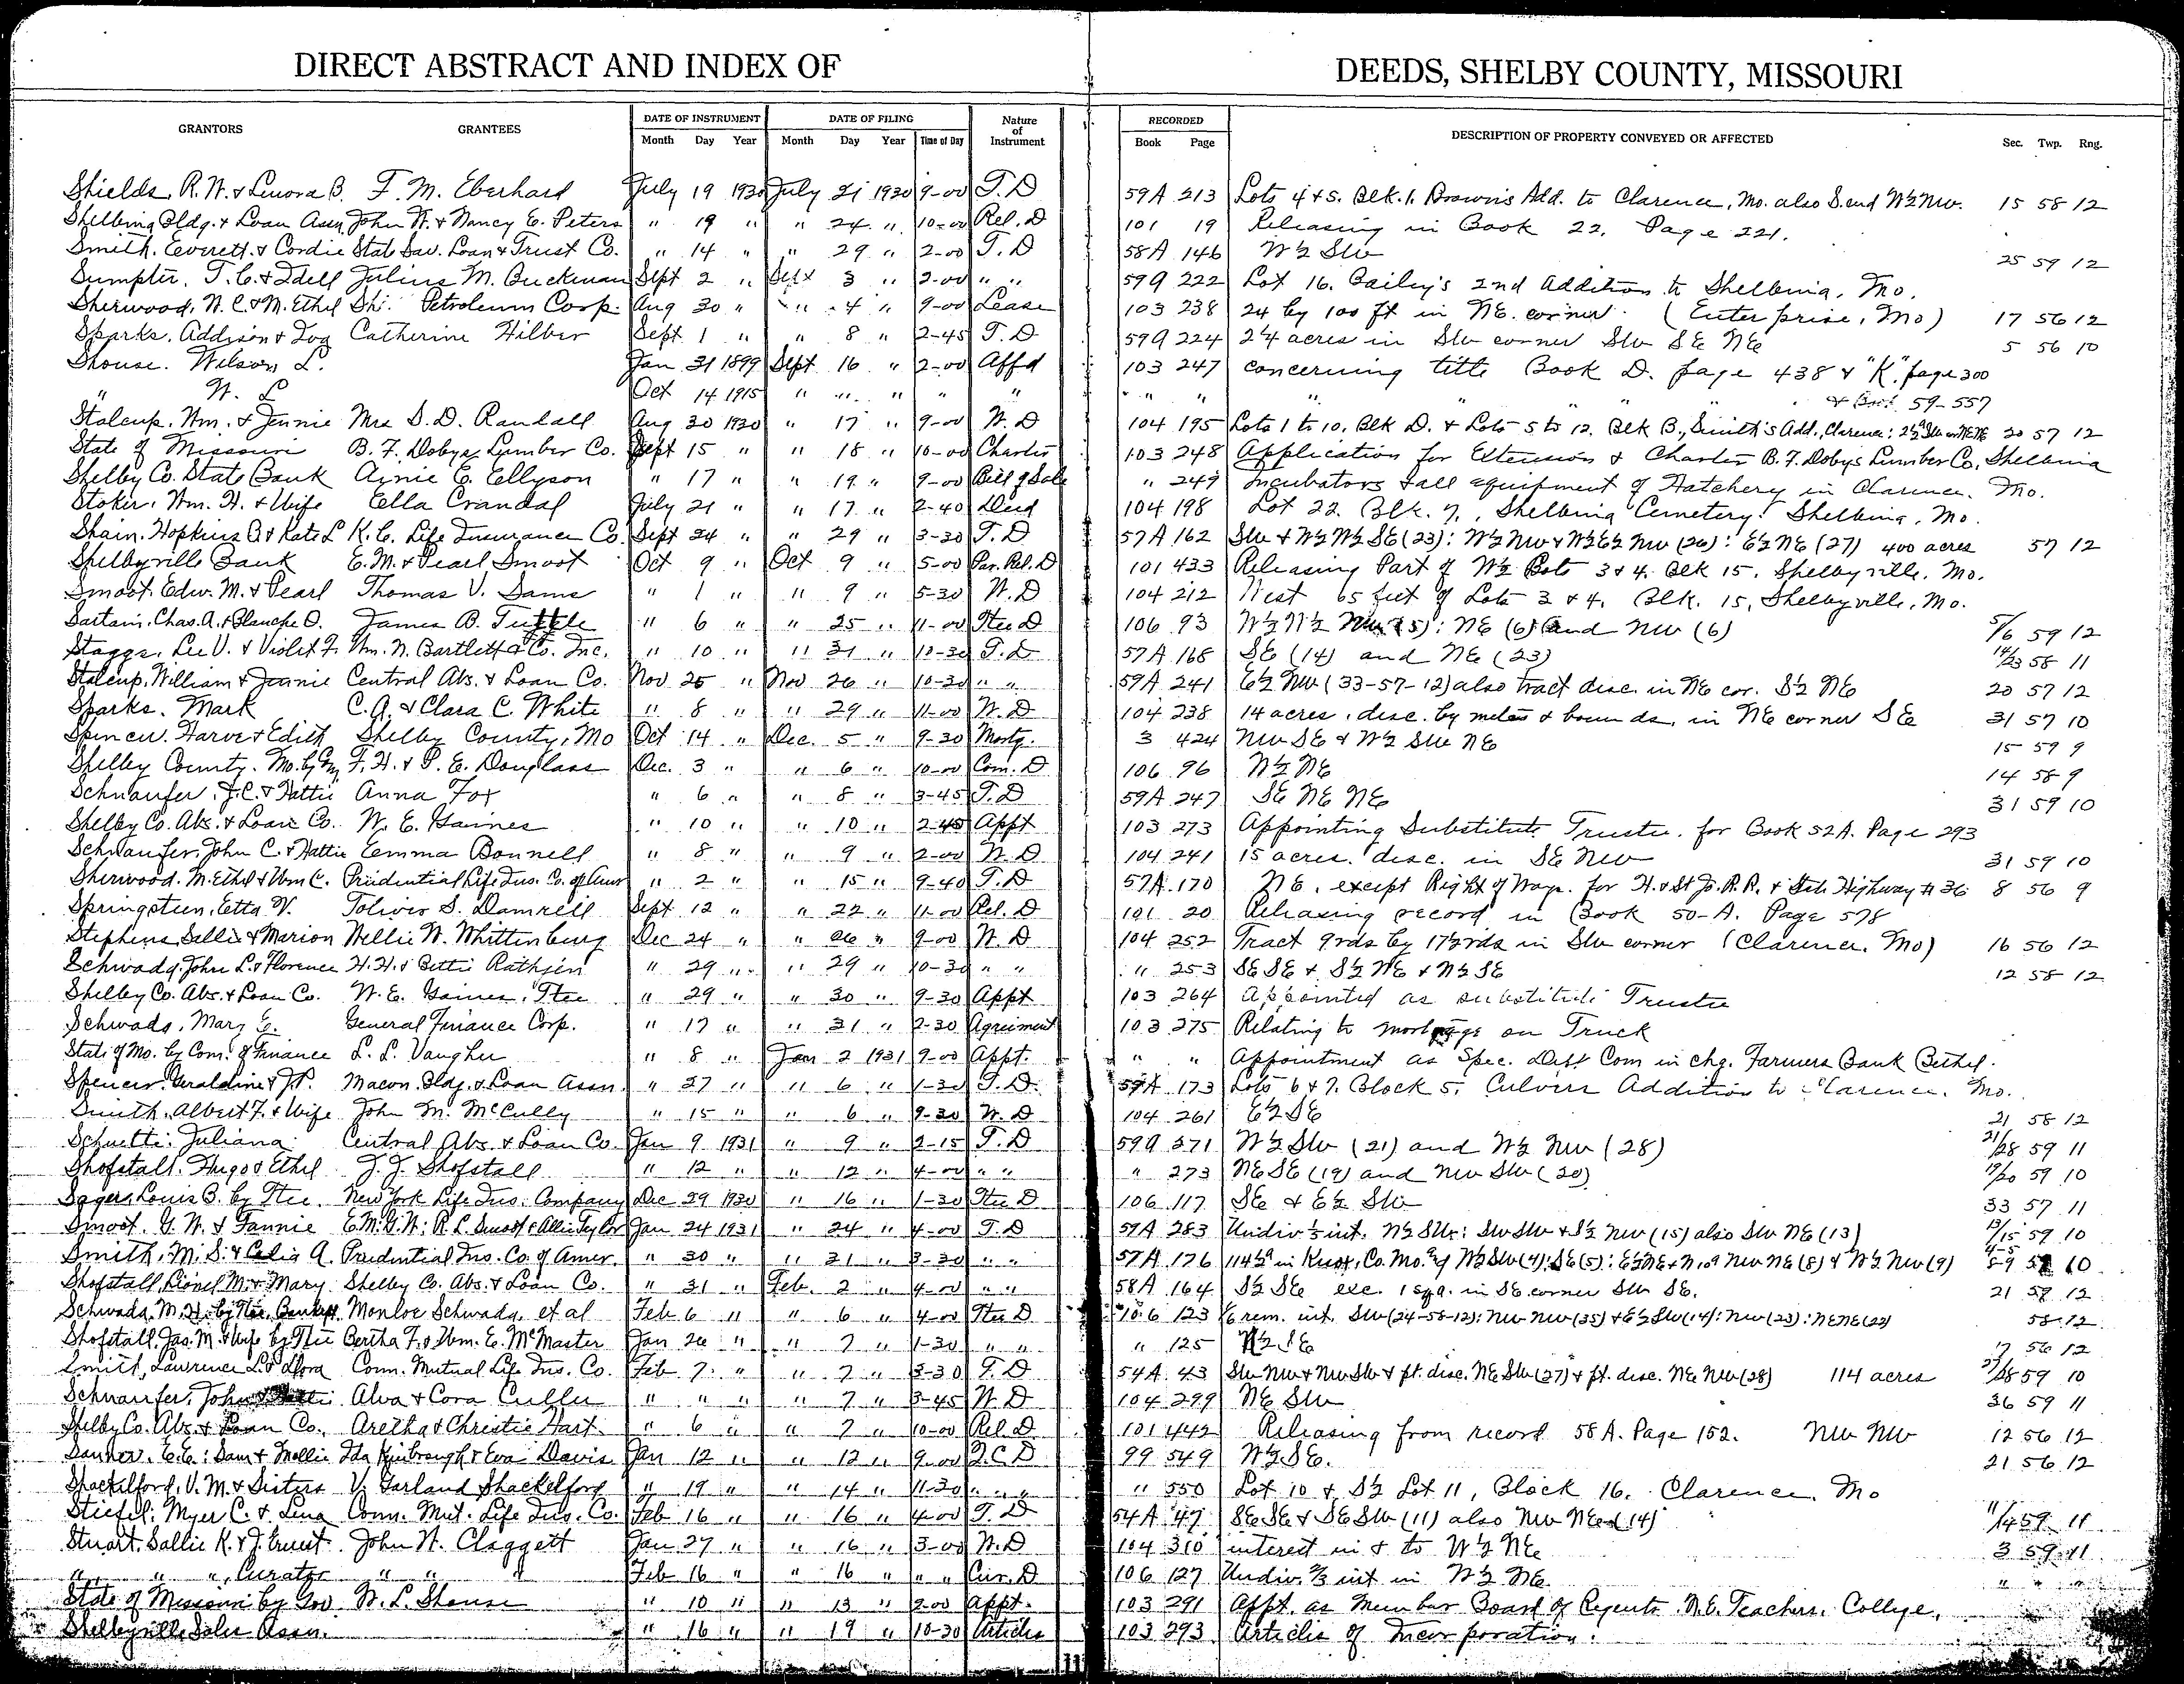 DIRECT ABSTRACT AND INDEX OF DEEDS, SHELBY COUNTY, MISSOURI
GRANTORS GRANTEES DATE OF INSTRUMENT DATE OF FILING Nature of Instrument RECORDED DESCRIPTION OF PROPERTY CONVEYED OR AFFECTED Sec. Twp. Rng.
Month Day Year Month Day Year Time of Day Book Page
Shields, R. W. & Lenora B. F. M. Eberhard July 19 1930 July 21 1930 9-00 T. D 59A 213 Lots 4 & 5. Blk. 1. Brown's Add. to Clarence, Mo. also S. end W½ NW. 15 58 12
Shelbina Bldg. & Loan Assn John W. & Nancy E. Peters " 19 " " 24 " 10-00 Rel. D 101 19 Releasing in Book 22. Page 221.
Smith, Everett & Cordie State Sav. Loan & Trust Co. " 14 " " 29 " 2-00 T. D 58A 146 W½ SW 25 59 12
Sumpter, T. C. & Idell Julius M. Buckman Sept 2 " Sept 3 " 2-00 " " 59A 222 Lot 16. Bailey's 2nd Addition to Shelbina, Mo.
Sherwood, W. C. & M. Ethel Petroleum Corp. Aug 30 " " 4 " 9-00 Lease 103 238 24 by 100 ft in NE. corner. (Enterprise, Mo) 17 56 12
Sparks, Addison & Catherine Hilber Sept 1 " " 8 " 2-45 T. D 59A 224 24 acres in SW corner SW SE NE 5 56 10
Shouse. Wilson L. Jan 31 1899 Sept 16 " 2-00 Affd 103 247 concerning title Book D. page 438 & "K" page 300
" W. L Oct 14 1915 " " " " " " " " " " " & Book 59-557
Stalcup. Wm. & Jennie Mrs S. D. Randall Aug 30 1930 " 17 " 9-00 W. D 104 195 Lots 1 to 10, Blk D. & Lots 5 to 12. Blk B., Smith's Add., Clarence: 20 57 12
State of Missouri B. F. Dobyns Lumber Co. Sept 15 " " 18 " 10-00 Charter 103 248 Application for Extension & Charter B. F. Dobyns Lumber Co, Shelbina
Shelby Co. State Bank E. Ellyson " 17 " " 19 " 9-00 Bill of Sale " 249 Incubators & all equipment of Hatchery in Clarence. Mo.
Stoker, Wm. H. & Wife Ella Crandal July 21 " " 17 " 2-40 Deed 104 198 Lot 22. Blk. 7., Shelbina Cemetery. Shelbina, Mo.
Shain, Hopkins B & Kate L K. C. Life Insurance Co. Sept 24 " " 29 " 3-30 T. D 57A 162 SW & W½ W½ SE (23): W½ NW & W½ E½ NW (26): E½ NE (27) 400 acres 57 12
Shelbyville Bank E. M. & Pearl Smoot Oct 9 " Oct 9 " 5-00 Par. Rel. D 101 433 Releasing Part of W½ Lots 3 & 4. Blk 15. Shelbyville. Mo.
Smoot. Edw. M. & Pearl Thomas V. Sams " 1 " " 9 " 5-30 W. D 104 212 West 65 feet of Lots 3 & 4. Blk. 15, Shelbyville, Mo.
Sartain, Chas. A. & Blanche O. James B. Tuttle " 6 " " 25 " 11-00 Ttee D 106 93 W½ W½ NW (5): NE (6) and NW (6) 5/6 59 12
Staggs, Lee V. & Violet F. Wm. N. Bartlett & Co. Inc. " 10 " " 31 " 10-30 T. D 57A 168 SE (14) and NE (23) 14/23 58 11
Stalcup, William & Jennie Central Abs. & Loan Co. Nov 25 " Nov 26 " 10-30 " " 59A 241 E½ NW (33-57-12) also tract desc. in NE cor. S½ NE 20 57 12
Sparks. Mark C. A. & Clara C. White " 8 " " 29 " 11-00 W. D 104 238 14 acres, desc. by metes & bounds, in NE corner SE 31 57 10
Spencer. Harve & Edith Shelby County, Mo Oct 14 " Dec. 5 " 9-30 Mortg. 3 424 NW SE & W½ SW NE 15 59 9
Shelby County. Mo. by F. H. & P. E. Douglass Dec. 3 " " 6 " 10-00 Com. D 106 96 W½ NE 14 58 9
Schnaufer, J. C. & Hattie Anna Fox " 6 " " 8 " 3-45 T. D 59A 247 SE NE NE 31 59 10
Shelby Co. Abs. & Loan Co. W. E. Gaines " 10 " " 10 " 2-45 Appt 103 273 Appointing Substitute Trustee. for Book 52A. Page 293
Schnaufer, John C. & Hattie Emma Bonnell " 8 " " 9 " 2-00 W. D 104 241 15 acres. desc. in SE NW 31 59 10
Sherwood. M. Ethel & Wm C. Prudential Life Ins. Co. of Amer " 2 " " 15 " 9-40 T. D 57A 170 NE. except Right of Way. for H. & St Jo. R. R. & State Highway #36 8 56 9
Springsteen, Etta V. Toliver S. Damrell Sept 12 " " 22 " 11-00 Rel. D 101 20 Releasing record in Book 50-A. Page 578
Stephens, Sallie & Marion Nellie W. Whittenburg Dec 24 " " 26 " 9-00 W. D 104 252 Tract 9 rds by 17½ rds in SW corner (Clarence. Mo) 16 56 12
Schwada, John L. & Florence H. H. & Bettie Rathjen " 29 " " 29 " 10-30 " " " 253 SE SE & S½ NE & N½ SE 12 58 12
Shelby Co. Abs. & Loan Co. W. E. Gaines, Ttee " 29 " " 30 " 9-30 Appt 103 264 Appointed as substitute Trustee
Schwada, Mary E. General Finance Corp. " 17 " " 31 " 2-30 Agreement 103 275 Relating to mortgage on Truck
State of Mo. by Com. of Finance L. L. Vaughn " 8 " Jan 2 1931 9-00 Appt. " " Appointment as Spec. Dept Com in chg. Farmers Bank Bethel.
Spencer, Geraldine & J. P. Macon Bldg. & Loan Assn. " 27 " " 6 " 1-30 T. D. 57A 173 Lots 6 & 7. Block 5. Culvers Addition to Clarence. Mo.
Smith, Albert F. & Wife John M. McCully " 15 " " 6 " 9-30 W. D 104 261 E½ SE 21 58 12
Schuette. Juliana Central Abs. & Loan Co. Jan 9 1931 " 9 " 2-15 T. D 59A 271 W½ SW (21) and W½ NW (28) 21/28 59 11
Shofstall. Hugo & Ethel J. J. Shofstall " 12 " " 12 " 4-00 " " " 273 NE SE (19) and NW SW (20) 19/20 59 10
Sagers, Louis B. by Ttee. New York Life Ins. Company Dec 29 1930 " 16 " 1-30 Ttee D 106 117 SE & E½ SW 33 57 11
Smoot. G. W. & Fannie E. M: G. W: R. L. Smoot & Allie Taylor Jan 24 1931 " 24 " 4-00 T. D 59A 283 Undiv ⅓ int. N½ SW: SW SW & S½ NW (15) also SW NE (13) 13/15 59 10
Smith, M. S. & Celia A. Prudential Ins. Co. of Amer. " 30 " " 31 " 3-30 " " 57A 176 114½ a in Knox, Co. Mo. W½ SW (4): SE (5): E½ NE & N 10 a NW NE (8) & W½ NW (9) 4-5 8-9 10
Shofstall, Lionel M. & Mary Shelby Co. Abs. & Loan Co. " 31 " Feb. 2 " 4-00 " " 58A 164 S½ SE exc. 1 sq a. in SE corner SW SE. 21 59 12
Schwada. M. H. by Ttee. Bankrpt. Monroe Schwada, et al Feb 6 " " 6 " 4-00 Ttee D 106 123 1/6 rem. int. SW (24-58-12): NW NW (35) & E½ SW (14): NW (23): NE NE (22) 58 12
Shofstall, Jas. M. & Wife by Ttee Bertha F. & Wm. E. McMaster Jan 26 " " 7 " 1-30 " " " 125 N½ SE 17 56 12
Smith, Lawrence L. & Flora Conn. Mutual Life Ins. Co. Feb 7 " " 7 " 3-30 T. D 54A 43 SW NW & NW SW & pt. desc. NE SW (27) & pt. desc. NE NW (28) 114 acres 27/28 59 10
Schnaufer, John Alva & Cora Culler " " " " 7 " 3-45 W. D 104 299 NE SW 36 59 11
Shelby Co. Abs. & Loan Co. Aretha & Christie Hart " 6 " " 7 " 10-00 Rel. D 101 442 Releasing from record 58A. Page 152. NW NW 12 56 12
Sanner. E. E: Sam & Mollie Ida Kimbrough & Eva Davis Jan 12 " " 12 " 9-00 Q. C. D 99 549 W½ SE. 21 56 12
Shackelford, V. M. & Sisters V. Garland Shackelford " 19 " " 14 " 11-30 " " " " 550 Lot 10 & S½ Lot 11, Block 16. Clarence. Mo
Stiefel. Myer C. & Lena Conn. Mut. Life Ins. Co. Feb 16 " " 16 " 4-00 T. D 54A 47 SE SE & SE SW (11) also NW NE (14) 11/14 59 11
Stuart. Sallie K. & J. Ernest John W. Claggett Jan 27 " " 16 " 3-00 W. D 104 310 interest in & to W½ NE 3 59 11
" " ", Curator " " " Feb 16 " " 16 " " " Cur. D 106 127 Undiv. ⅔ int in W½ NE " " "
State of Missouri by Gov W. L. Shouse " 10 " " 13 " 2-00 Appt. 103 291 Appt. as Member Board of Regents. N. E. Teachers. College.
Shelbyville Sales Assn. " 16 " " 19 " 10-30 Articles 103 293 Articles of Incorporation.